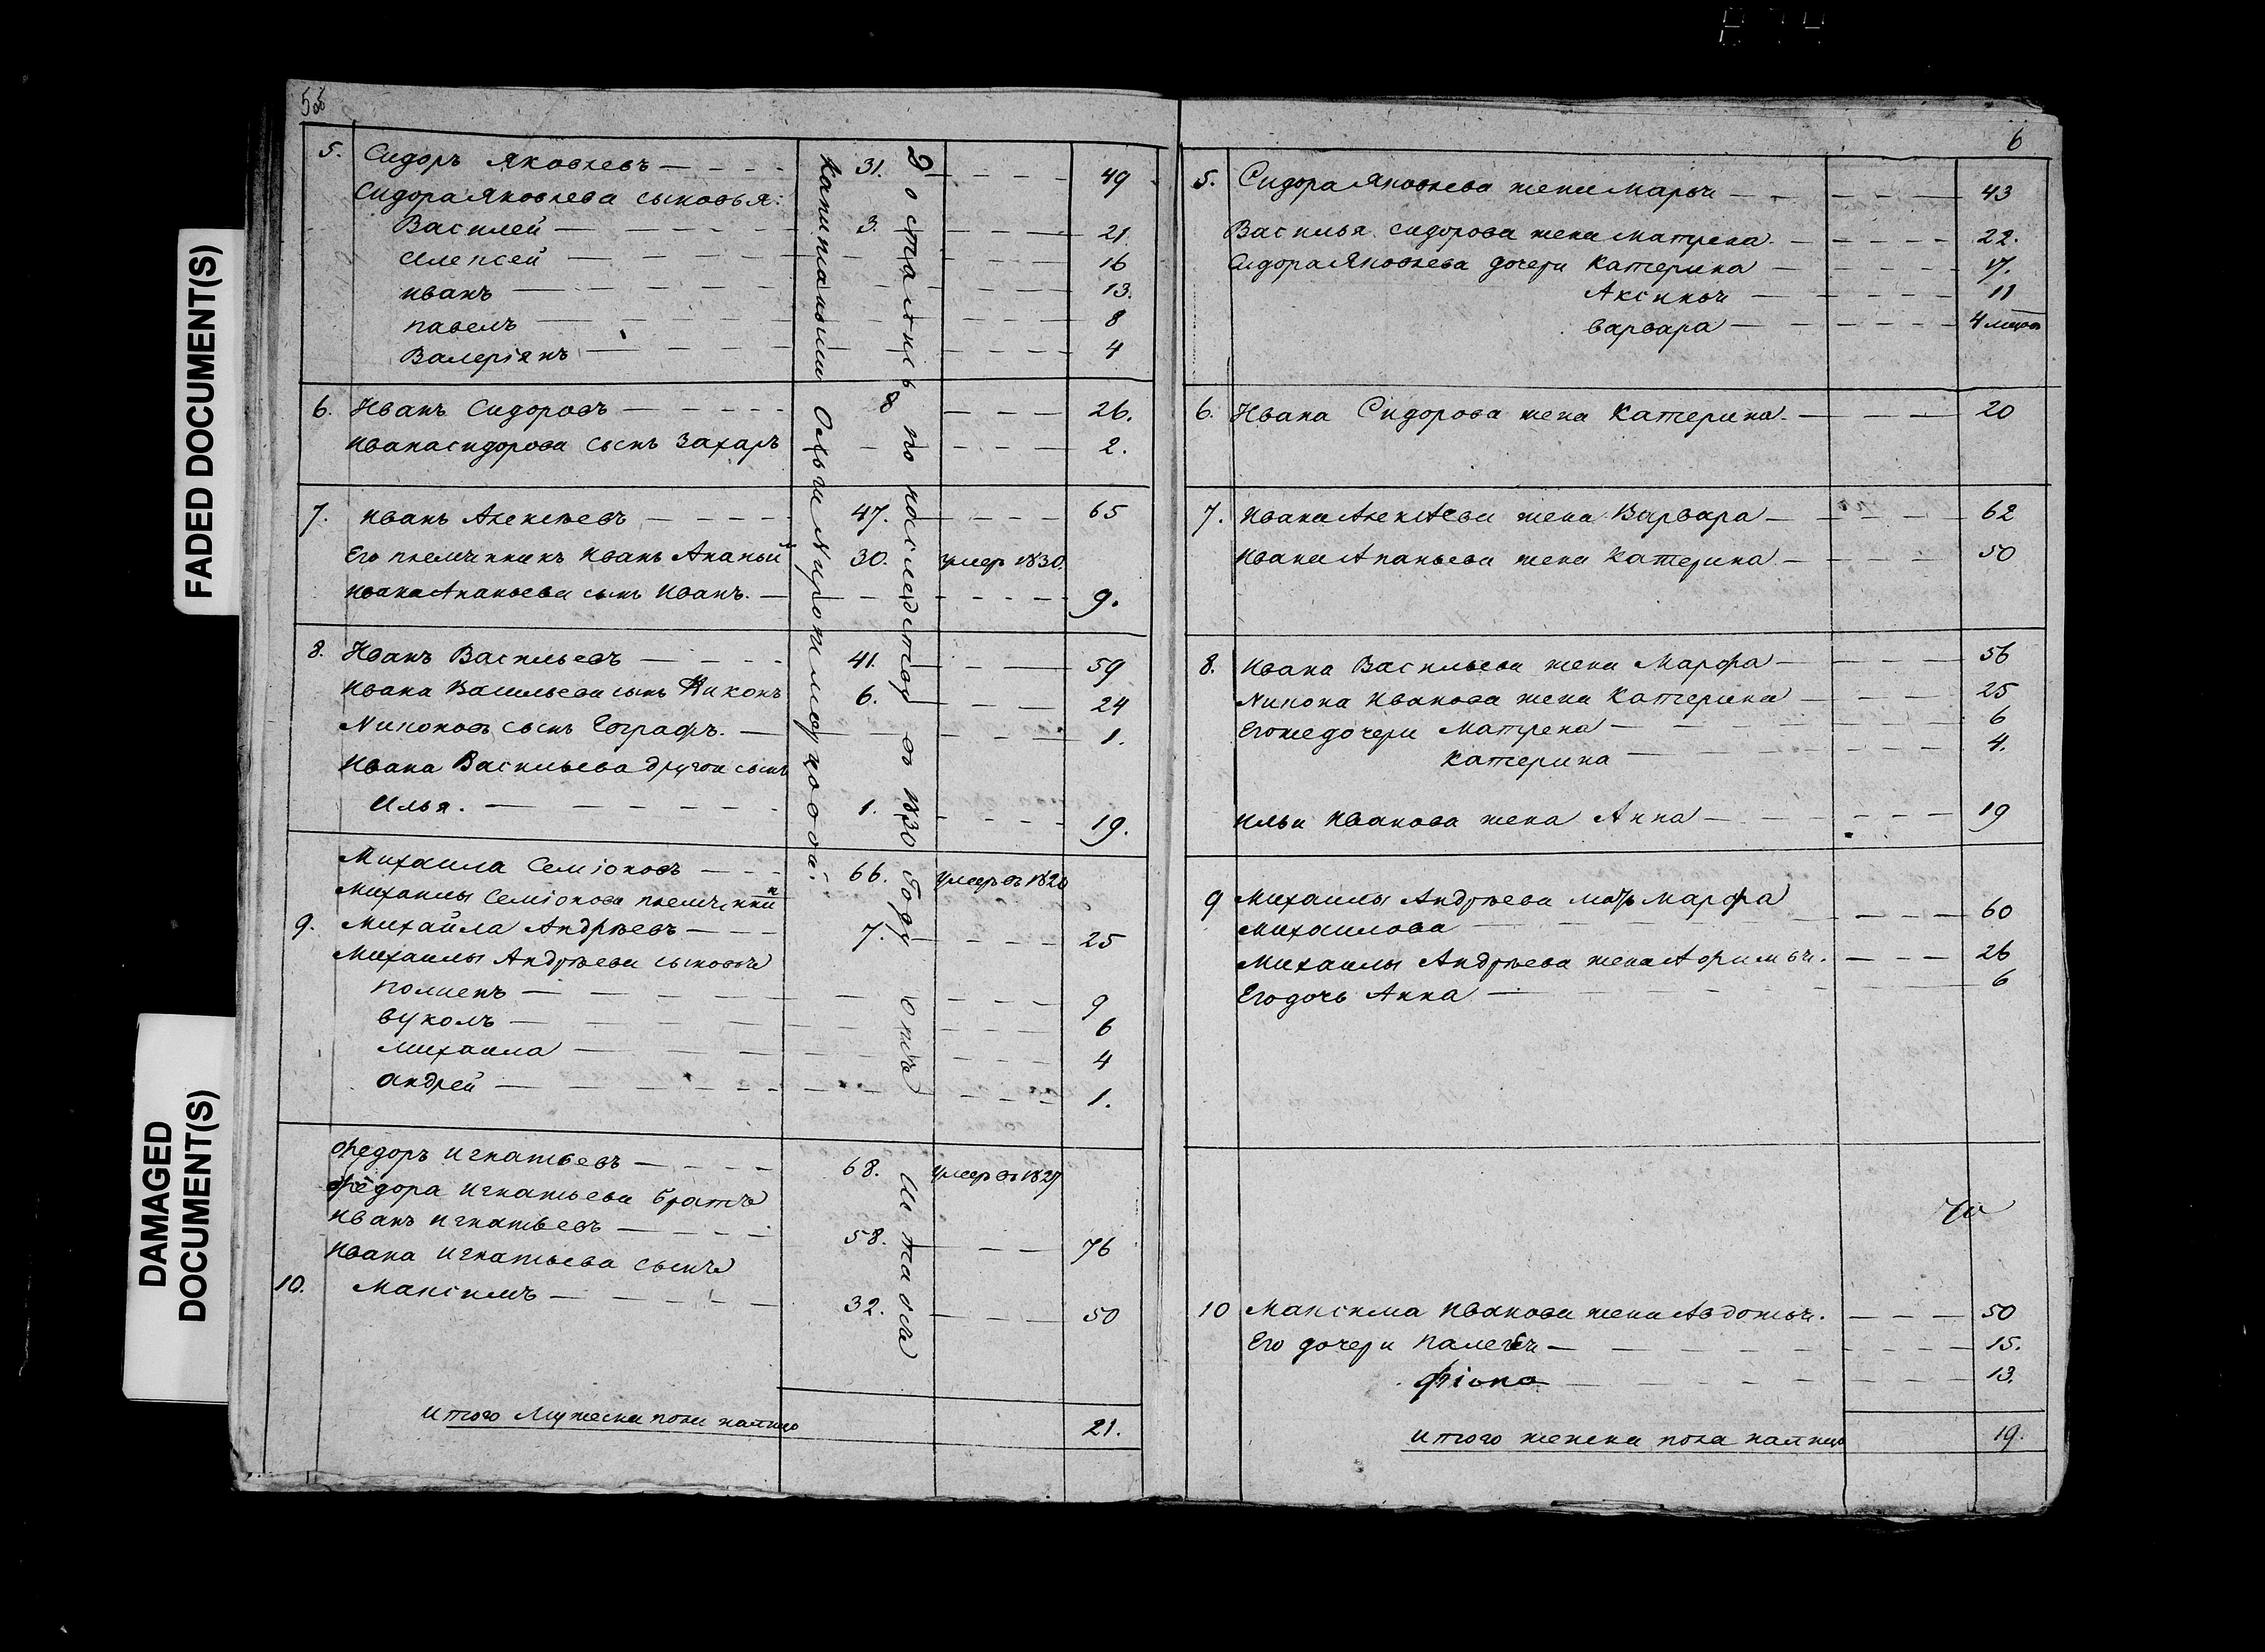 FADED DOCUMENT(S)
DAMAGED
DOCUMENT(S)
5об
5. Сидоръ Яковлевъ 31. 49
Сидора Яковлева сыновья:
Василей 3. 21
Алексей 16
Иванъ 13.
Павелъ 8
Валеріянъ 4
6. Иванъ Сидоровъ 8 26.
Ивана Сидорова сынъ Захаръ 2.
7. Иванъ Алексѣевъ 47. 65
Его племянникъ Иванъ Ананьи 30. умеръ 1830.
Ивана Ананьева сынъ Иванъ. 9.
8. Иванъ Васильевъ 41. 59
Ивана Васильева сынъ Никонъ 6. 24
Никоновъ сынъ Евграфъ. 1.
Ивана Васильева другои сынъ
Илья. 1. 19.
Михаила Семіоновъ 66. умеръ въ 1820
Михаилы Семіонова племянники
9. Михайла Андрѣевъ 7. 25
Михаилы Андрѣева сыновья
9
Вуколъ 6
Михаила 4
Андрей 1.
Федоръ Игнатьевъ 68. умеръ въ 1827
Федора Игнатьева братъ
Иванъ Игнатьевъ 58. 76
Ивана Игнатьева сынъ
10. Максимъ 32. 50
Итого Мужеска пола налицо 21.
Капитаньши Ольги
Достались по наслѣдству въ 1830 Году отъ
6
5. Сидора Яковлева жена Марья 43
Василья Сидорова жена Матрена. 22.
Сидора Яковлева дочери Катерина 17.
Аксинья 11
Варвара 4 месяц
6. Ивана Сидорова жена Катерина. 20
7. Ивана Алексѣева жена Варвара 62
Ивана Ананьева жена Катерина. 50
8. Ивана Васильева жена Марфа 56
Никона Иванова жена Катерина 25
Егоже дочери Матрена 6
Катерина 4.
Ильи Иванова жена Анна 19
9 Михаилы Андрѣева мать Марфа
Михаилова 60
Михаилы Андрѣева жена Афимья. 26
Его дочь Анна 6
10 Максима Иванова жена Авдотья. 50
Его дочери Палегея 15.
Фіона 13.
Итого женска пола налицо 19.